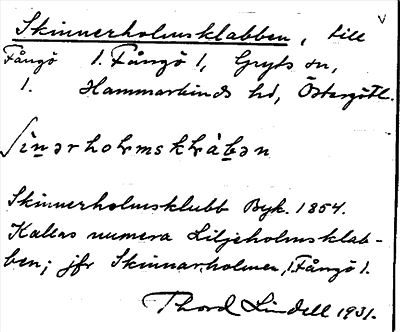 Skinnerholmsklabben, till
v
Fångö 1. Fångö 1, Gryts sn,
1. Hammarkinds hd, Östergötl.
ʃìn̲ərhoɫmskɫàb̲ən
Skinnerholmsklubb Byk. 1854.
Kallas numera Liljeholmsklab-
ben; jfr Skinnarholmen, 1 Fångö 1.
Thord Lindell 1931.